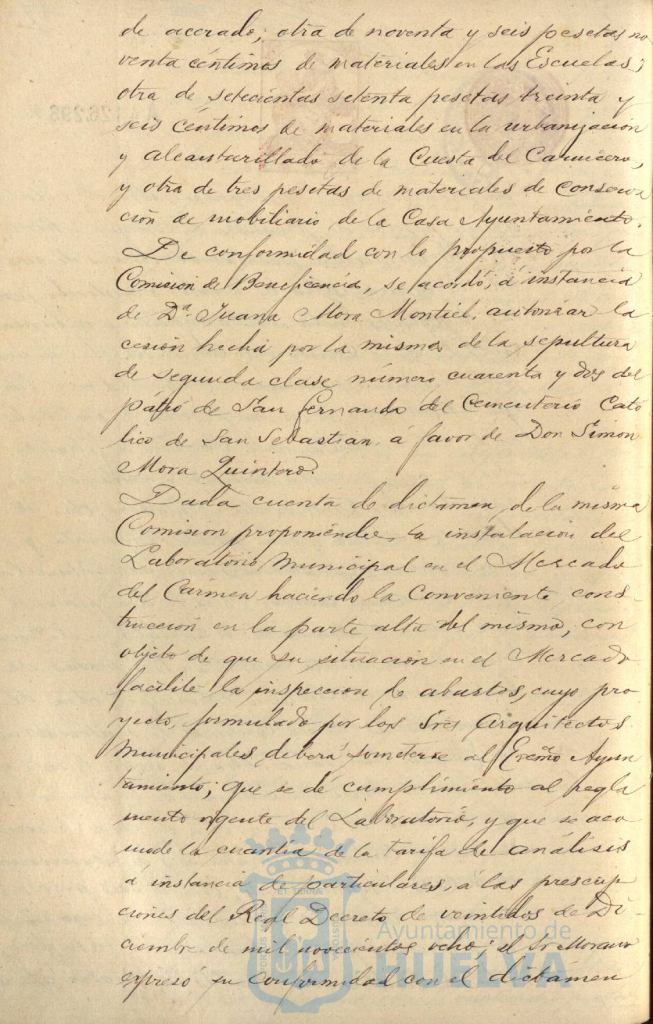 de acerado; otra de noventa y seis pesetas no
venta céntimos de materiales en las Escuelas;
otra de setecientas setenta pesetas treinta y
seis céntimos de materiales en la urbanización
y alcantarillado de la Cuesta del Carnicero,
y otra de tres pesetas de materiales de conserva
ción de mobiliario de la Casa Ayuntamiento.
De conformidad con lo propuesto por la
Comisión de Beneficencia, se acordó, á instancia
de Dª Juana Mora Montiel, autorizar la
cesión hecha por la misma de la sepultura
de segunda clase número cuarenta y dos del
patio de San Fernando del Cementerio Cató
lico de San Sebastian á favor de Don Simon
Mora Quintero.
Dada cuenta de dictamen de la misma
Comision proponiendo la instalación del
Laboratorio Municipal en el Mercado
del Carmen haciendo la conveniente cons-
trucción en la parte alta del mismo, con
objeto de que su situación en el Mercado
facilite la inspeccion de abastos, cuyo pro
yecto, formulado por los Sres Arquitectos
Municipales deberá someterse al Excmo Ayun
tamiento; que se dé cumplimiento al regla
mento vigente del Laboratorio, y que se aco
mode la cuantía de la tarifa de análisis
á instancia de particulares, á las prescrip
ciones del Real Decreto de veintidos de Di
ciembre de mil novecientos ocho; el Sr Moreno
expresó su conformidad con el dictámen
Ayuntamiento de
HUELVA